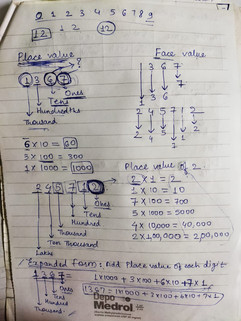 0 1 2 3 4 5 6 7 8 9
12 1 2 12
Place value
Face value
1 3 6 7
Ones
Tens
Hundreds
Thousand
1 3 6 7
7
6
3
1
6 x 10 = 60
3 x 100 = 300
1 x 1000 = 1000
2 4 5 7 1 2
2 4 5 7 1 2
Ones
Tens
Hundred
Thousand
Ten Thousand
Lakhs
Place value of 2
2 x 1 = 2
1 x 10 = 10
7 x 100 = 700
5 x 1000 = 5000
4 x 10,000 = 40,000
2 x 1,00,000 = 200,000
Expanded Form: Add Place value of each digit
1 3 6 7 = 1x1000 + 3x100 + 6x10 + 7x1
Ones
Ten
Hundred
Thousand
1367 = 1x1000 + 3x100 + 6x10 + 7x1
Depo
Medrol